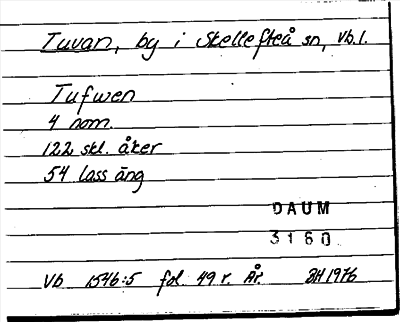 Tuvan, by i Skellefteå sn, Vb.l.
Tufwen
4 nom.
122 skl. åker
54 lass äng
DAUM
3160
Vb 1546:5 fol. 49 r. År. BH 1976